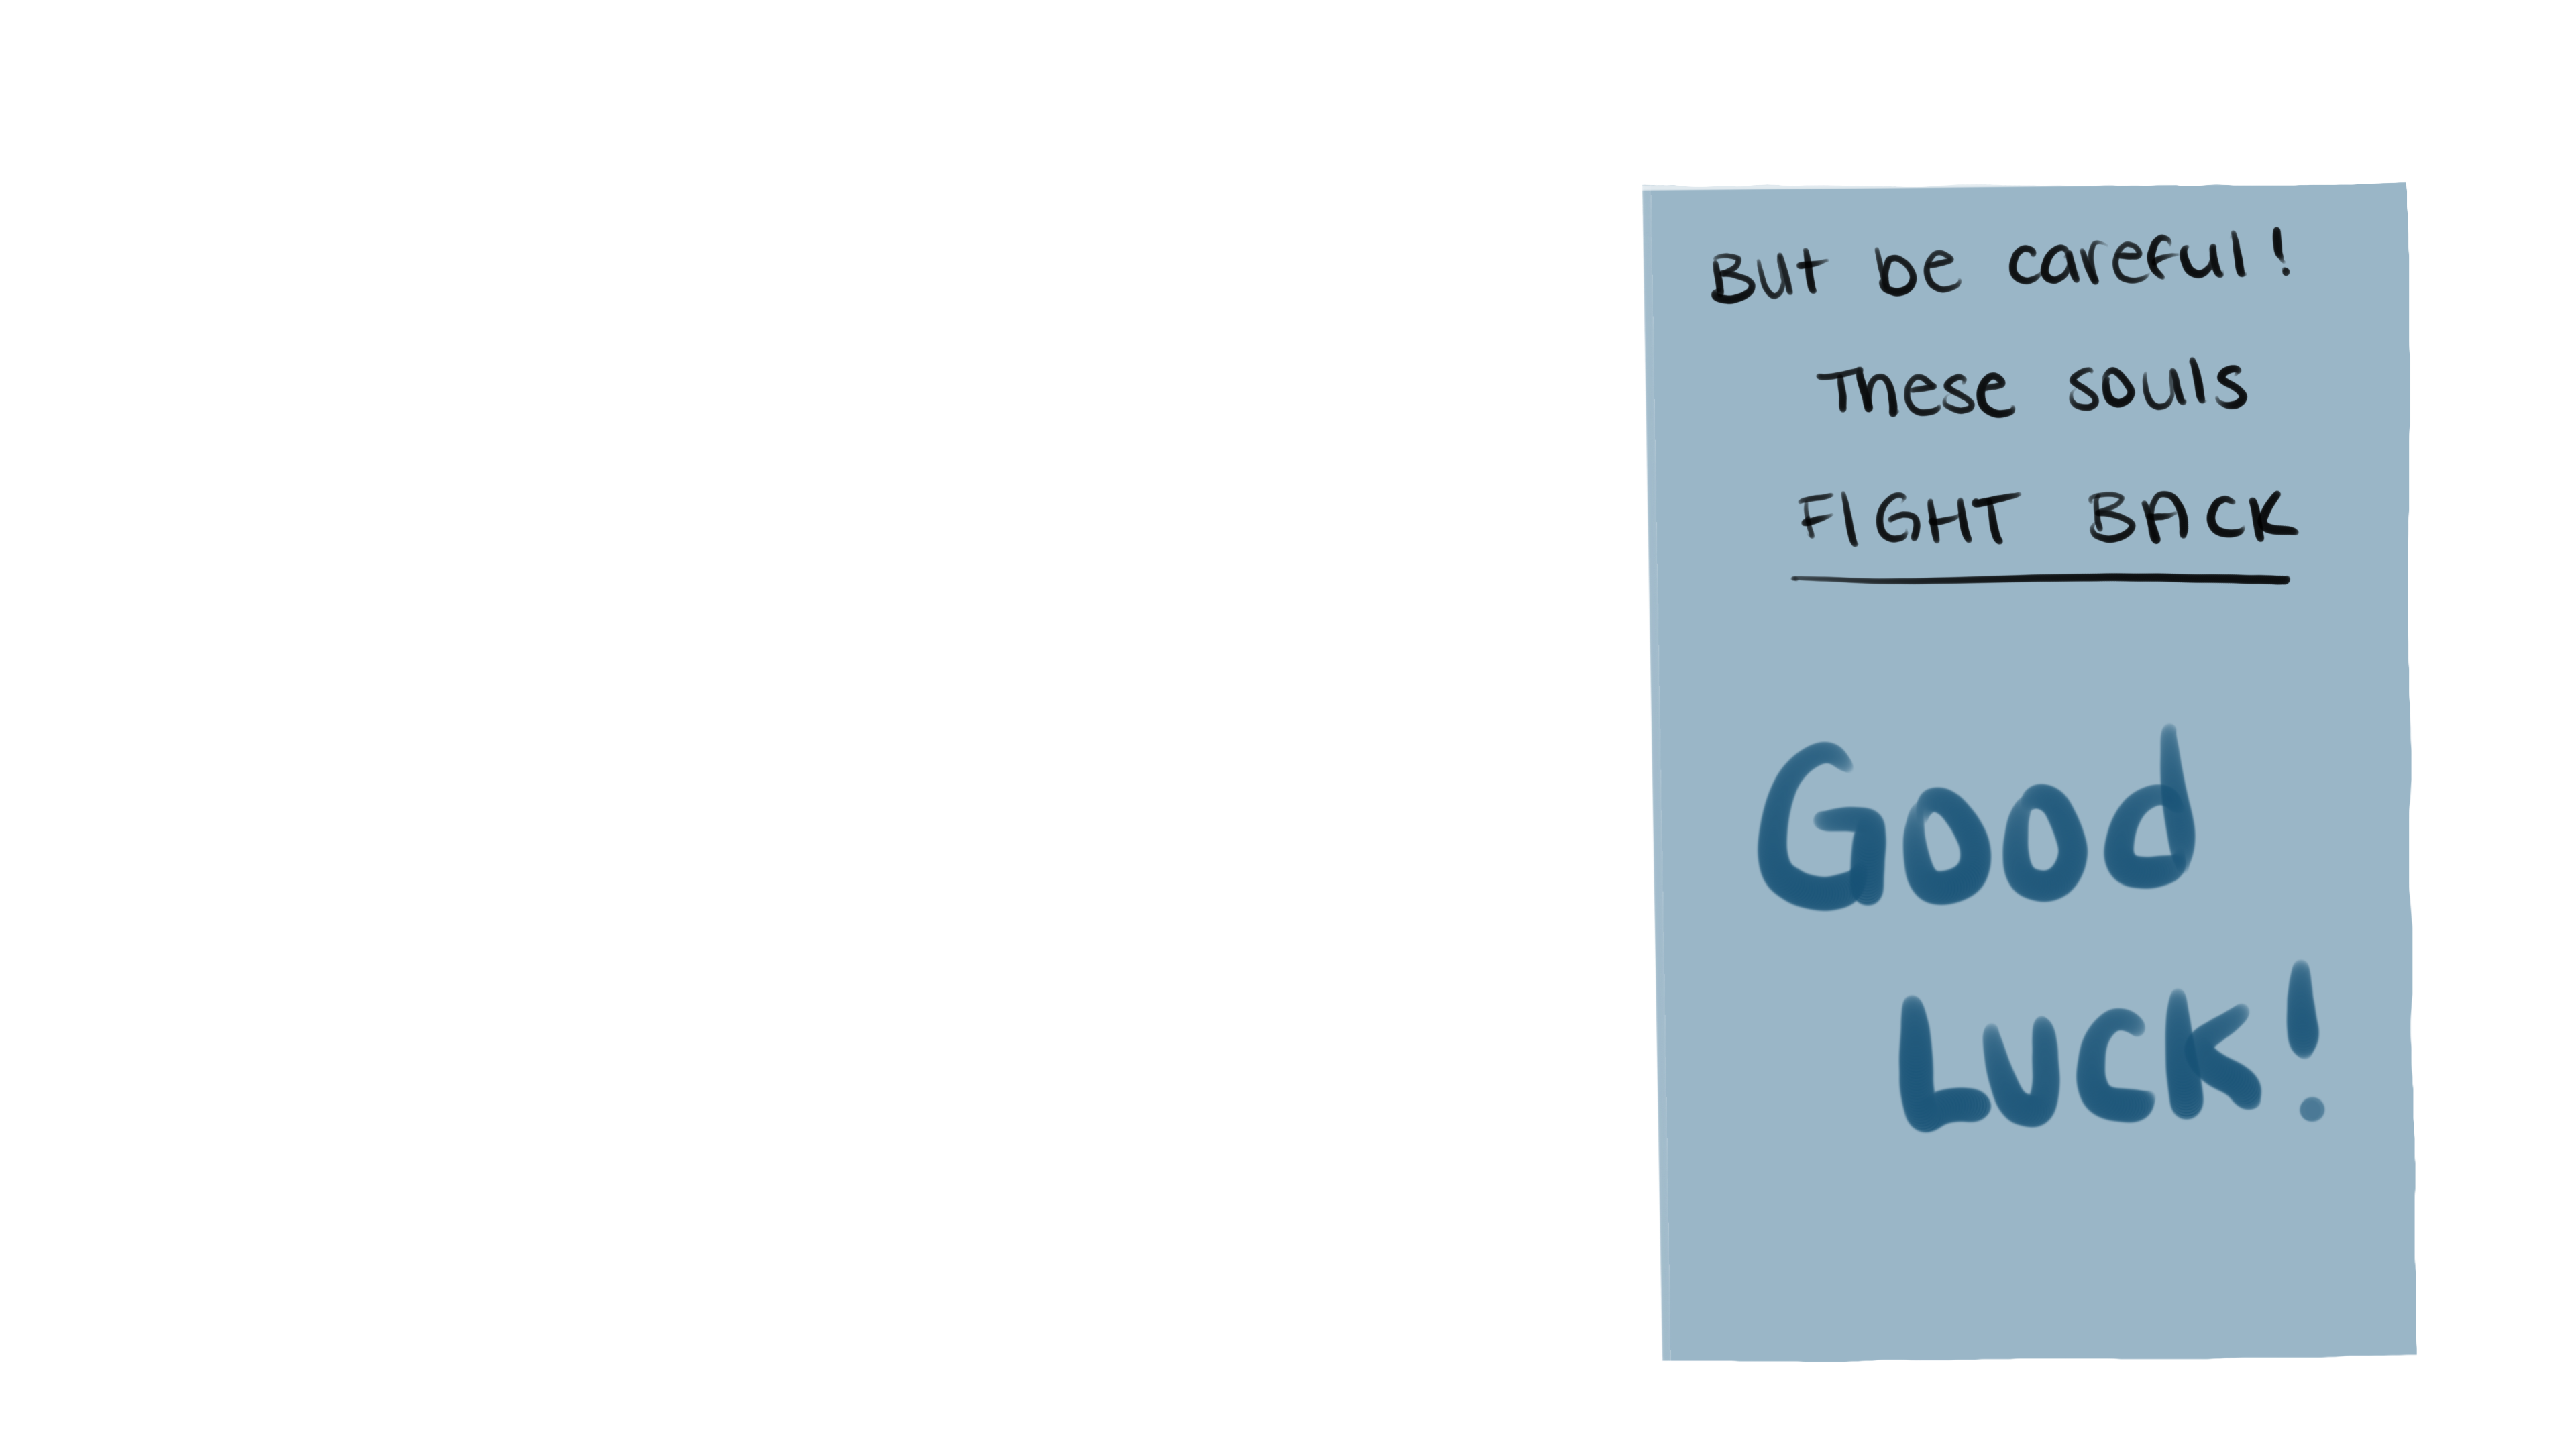 But be careful!
These souls
FIGHT BACK
Good
Luck!